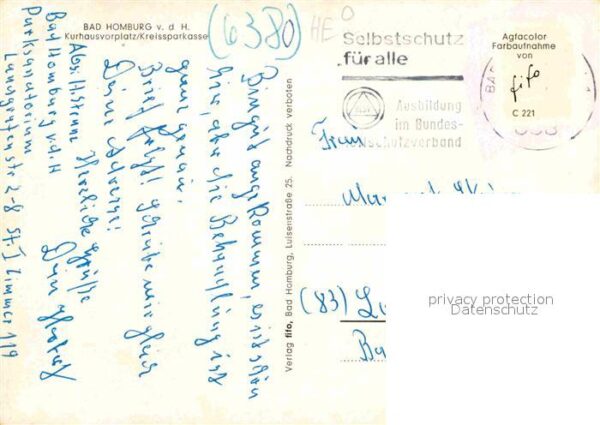 BAD HOMBURG v. d. H.
Kurhausvorplatz/Kreissparkasse
(6380)
HE
Bin gut angekommen, es ist schön
hier, aber die Behandlung ist
ganz gemein.
Brief folgt! Schreibe mir gleich
Deine Adresse!
Herzliche Grüße
Dein
Abs.: H.
Bad Homburg v.d.H
Parksanatorium
Landgrafenstr 2-8 St. I Zimmer 119
Verlag fifo, Bad Homburg, Luisenstraße 25. Nachdruck verboten
Selbstschutz
für alle
Ausbildung
im Bundes-
luftschutzverband
Agfacolor
Farbaufnahme
von
fifo
C 221
Frau
(83)
privacy protection
Datenschutz